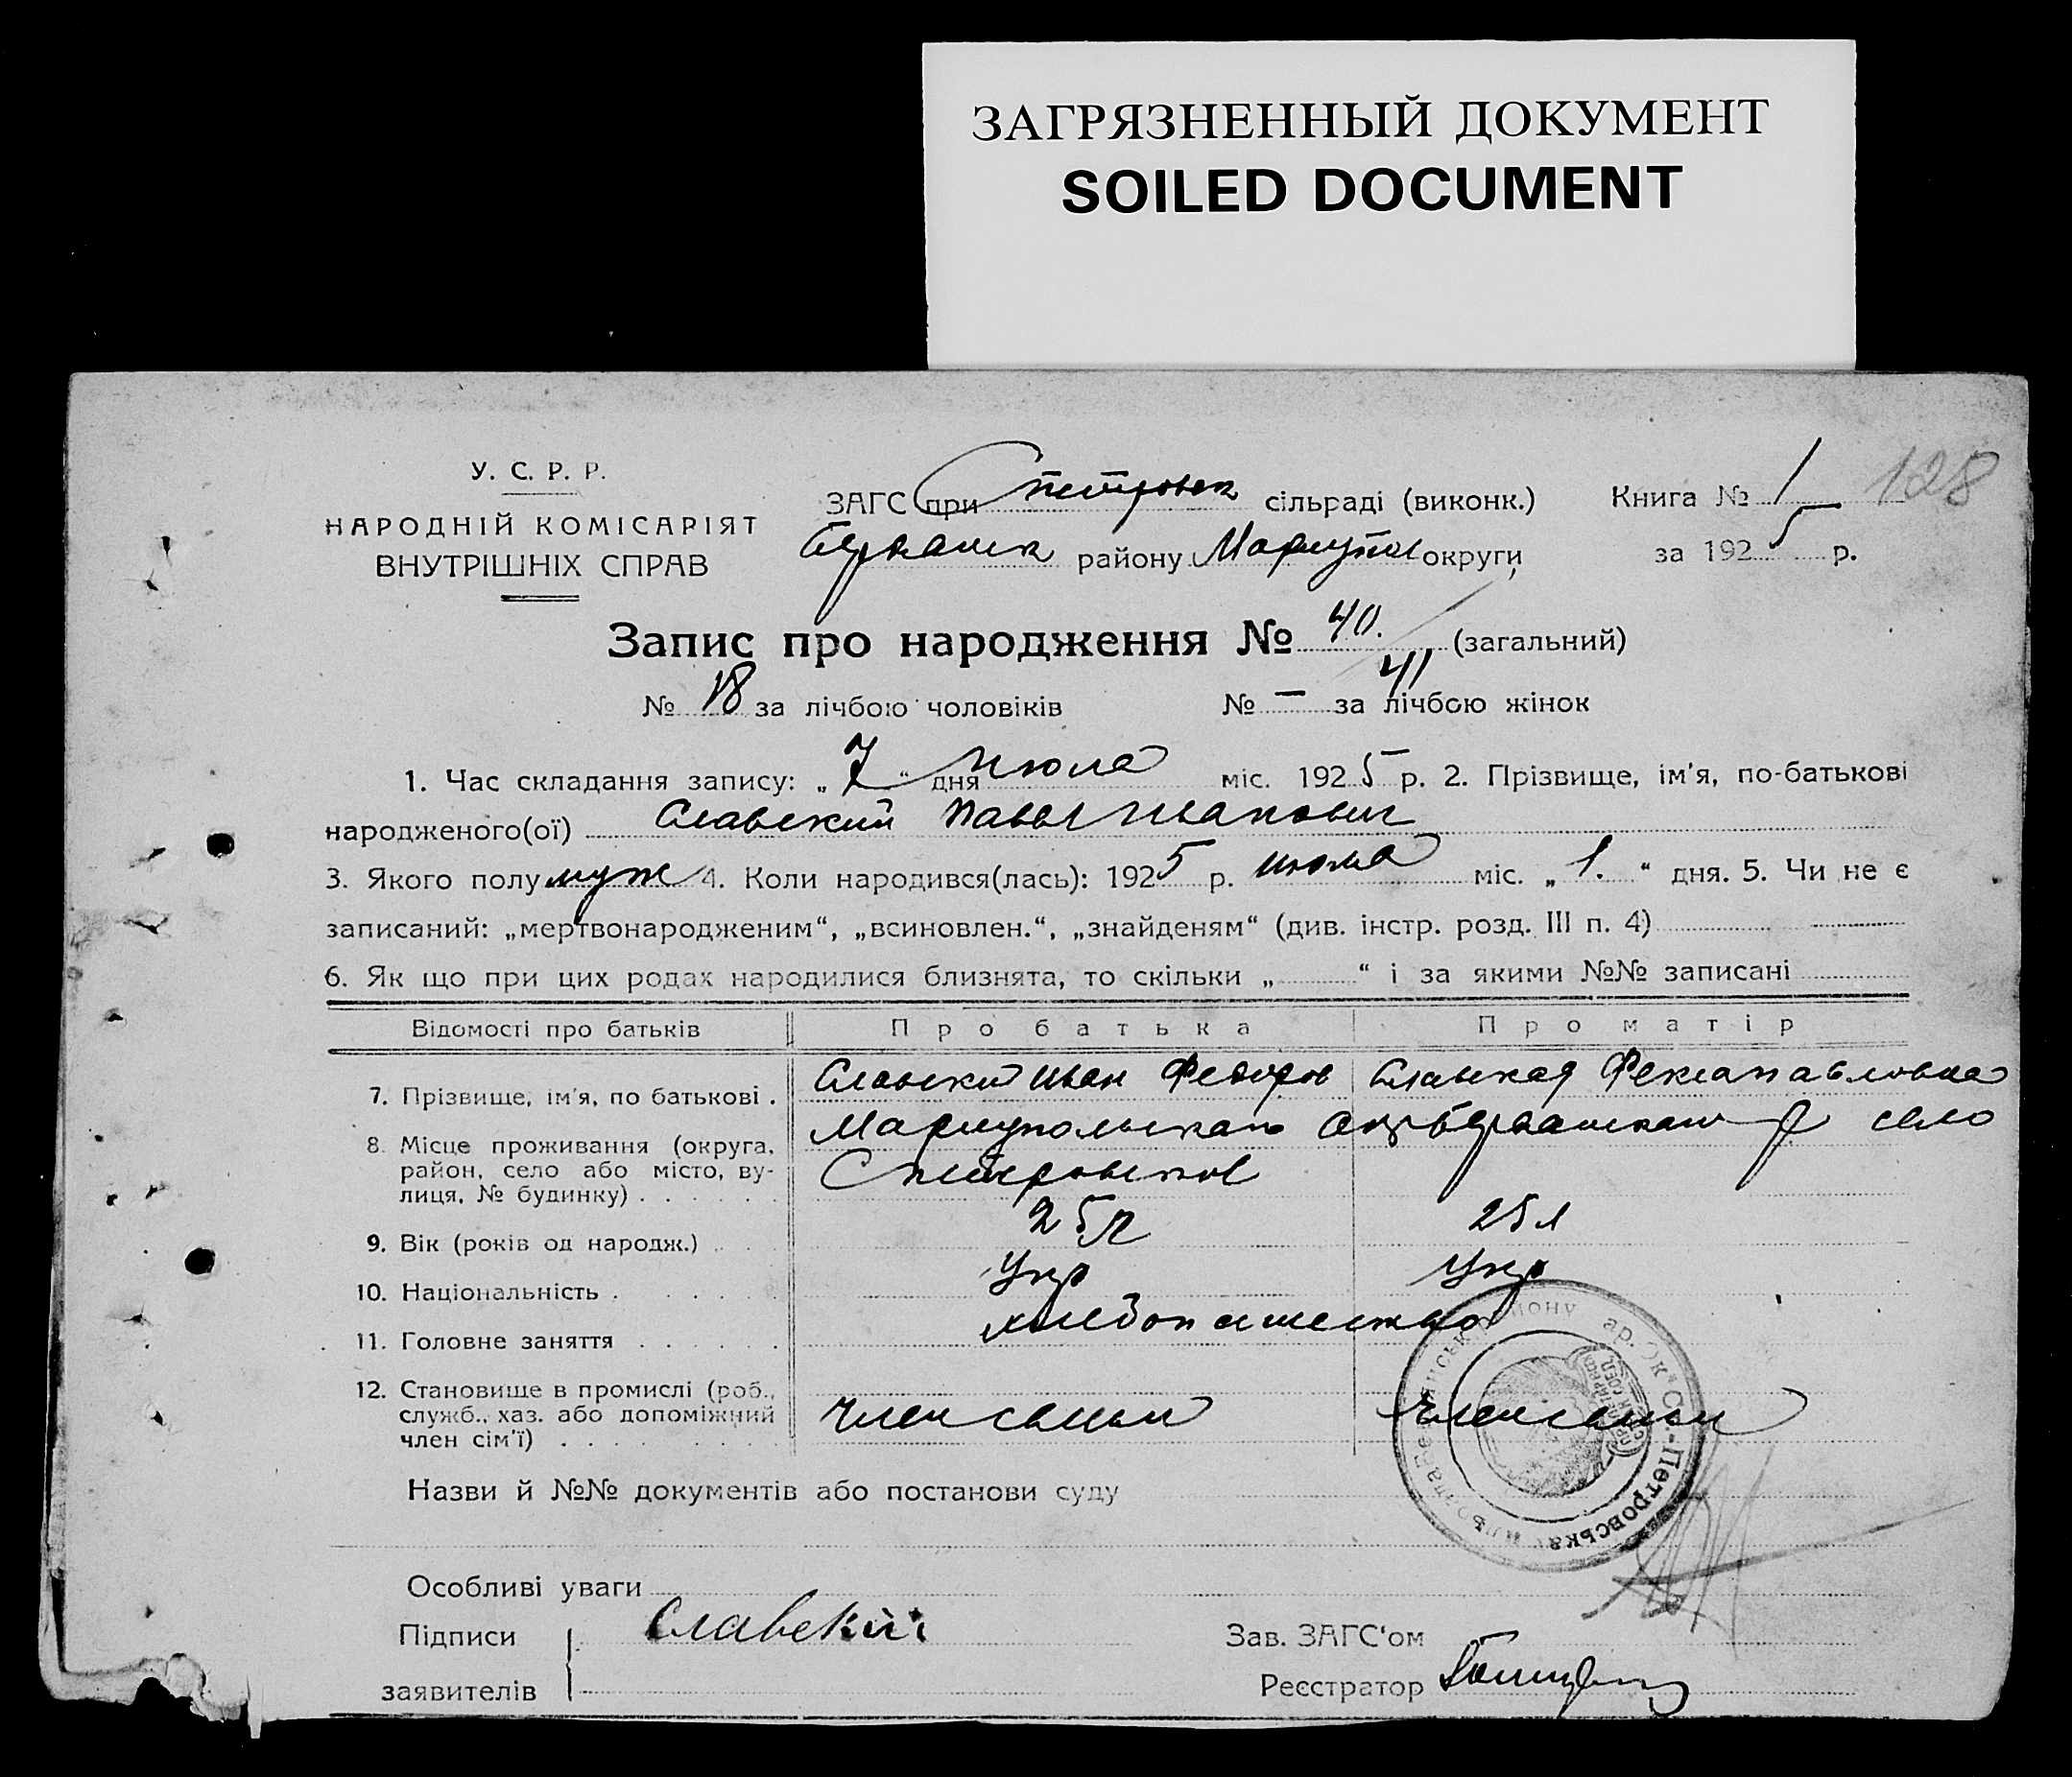 ЗАГРЯЗНЕННЫЙ ДОКУМЕНТ
SOILED DOCUMENT
У. С. Р. Р.
НАРОДНІЙ КОМІСАРІЯТ
ВНУТРІШНІХ СПРАВ
ЗАГС при Спетровск сільраді (виконк.)
района Мариупол округи
Книга № 1 128
за 1925 р.
Запис про народження № 40. (загальний)
41
№ 18 за лічбою чоловіків № — за лічбою жінок
1. Час складання запису: „7“ дня Июля міс. 1925 р. 2. Прізвище, ім'я, по-батькові
народженого(ої) Славский Павел Иванович
3. Якого полу муж 4. Коли народився(лась): 1925 р. июля міс. „1.“ дня. 5. Чи не є
записаний: „мертвонародженим“, „всиновлен.“, „знайденям“ (див. інстр. розд. III п. 4)
6. Як що при цих родах народилися близнята, то скільки „ “ і за якими №№ записані
Відомості про батьків Про батька Про матір
7. Прізвище, ім'я, по батькові . Славский Иван Федоров Славская Фекла Павловна
8. Місце проживання (округа, район, село або місто, вулиця, № будинку) . . . . . . Мариупольская окр село
Спетровской
9. Вік (років од народж.) . . 25 л 25 л
10. Національність . . . . . Укр Укр
11. Головне заняття . . . . . . хлебопашество
12. Становище в промислі (роб., служб., хаз. або допоміжний член сім'ї) . . . . . . . . член семьи член семьи
Назви й №№ документів або постанови суду
Особливі уваги
Підписи заявителів Славский
Зав. ЗАГС'ом
Реєстратор
Петровська